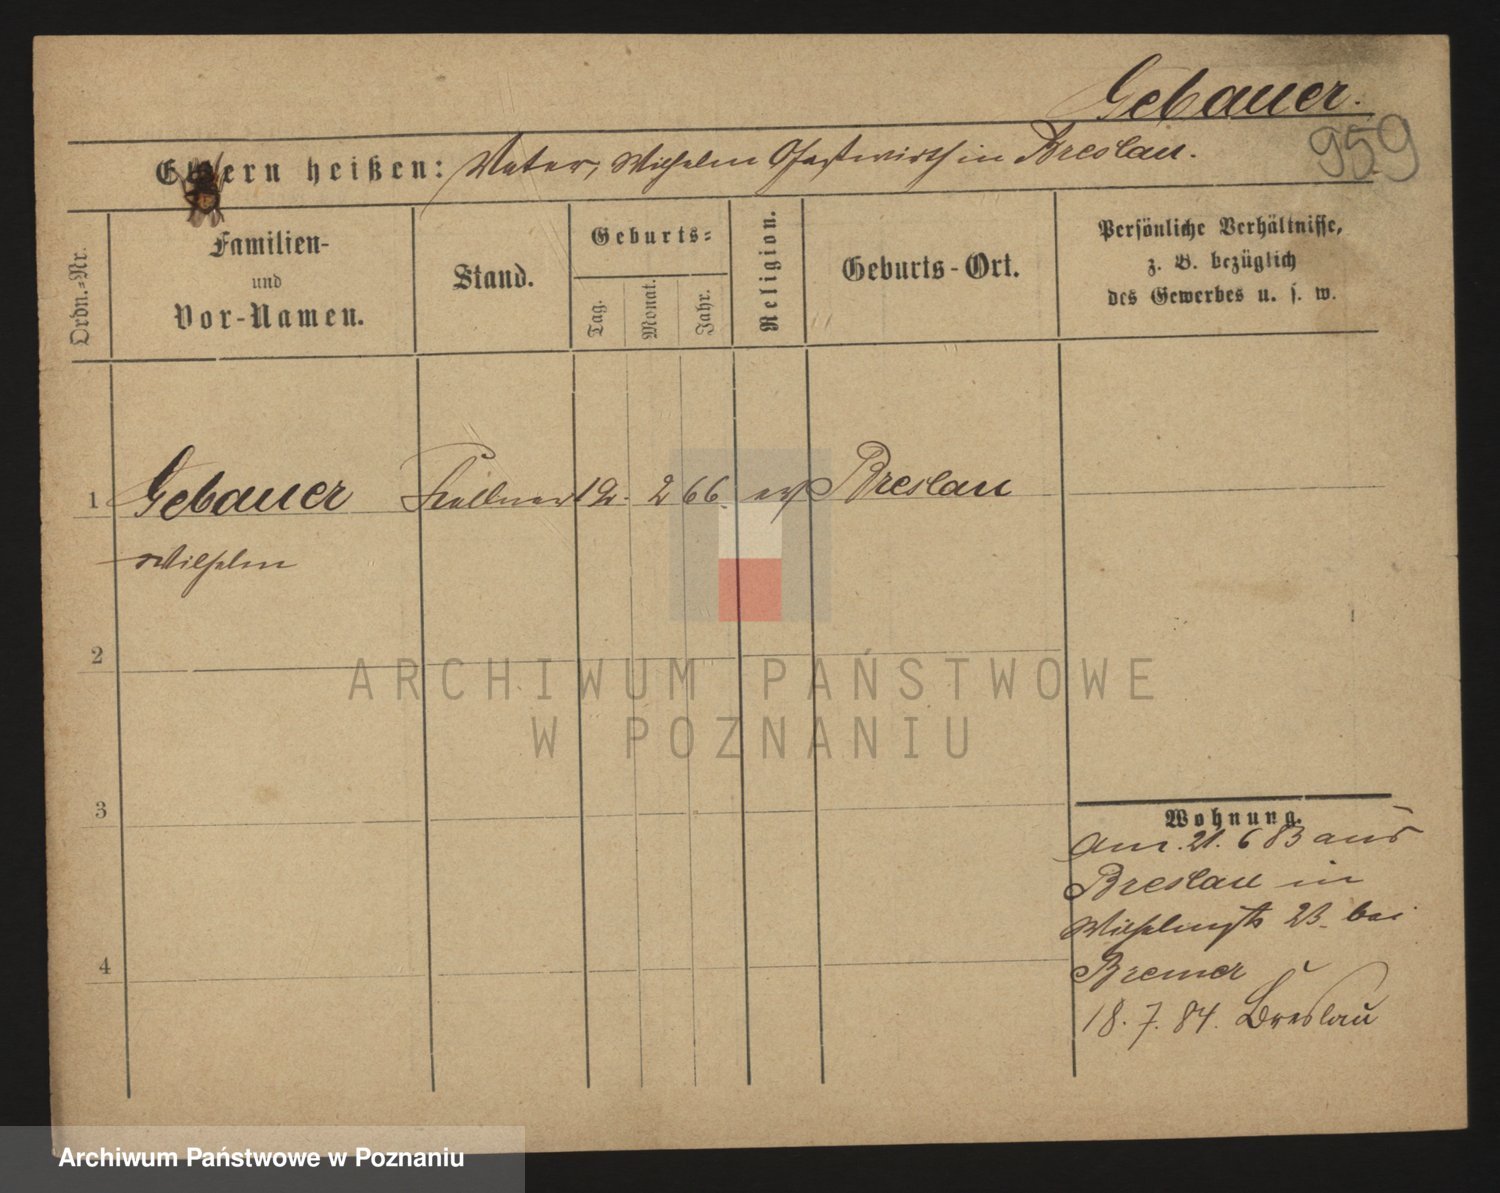 Gebauer.
959
Eltern heißen: Vater, Wilhelm Gastwirth in Breslau.
Ordn.-Nr.
Familien-
und
Vor-Namen.
Stand.
Geburts-
Tag.
Monat.
Jahr.
Religion.
Geburts-Ort.
Persönliche Verhältnisse,
z. B. bezüglich
des Gewerbes u. s. w.
1 Gebauer Kellner 12. 2 66. ev Breslau
Wilhelm
2
3
4
Wohnung.
Am. 21. 6 83 aus
Breslau in
Wilhelmstr 23. bei
Bremer
18. 7. 84. Breslau
ARCHIWUM PAŃSTWOWE
W POZNANIU
Archiwum Państwowe w Poznaniu